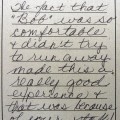 The fact that
"Bob" was so
comfortable
& didn't try
to run away
made this a
really good
experience &
that was because
of your staff